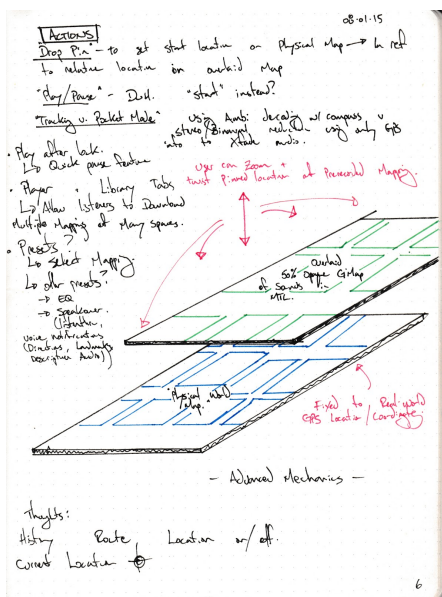 08·01·15
ACTIONS
"Drop Pin" - to set start location on Physical Map → In ref
to relative location on overlaid map
"Play/Pause" - Duh. "start" instead?
"Tracking v. Pocket Mode" using Ambi decoding w/ compass v
stereo/Binaural using only GPS
audio.
· Play after lock.
↳ Quick pause feature
· Player + Library Tabs
↳ Allow listeners to Download
Multiple Mappings of Many spaces.
· Presets?
↳ select Mapping.
↳ other presets?
→ EQ
→ Speakover
voice notifications
(Directions, Landmarks,
Descriptive Audio)
User can Zoom +
twist Pinned location of Prerecorded Mapping.
Overlaid
50% Opaque
of Sounds in
MTL.
"Physical World"
Map.
Fixed to Real-World
GPS Location/Coordinates.
- Advanced Mechanics -
Thoughts:
History Route, Location on/off.
Current Location
6